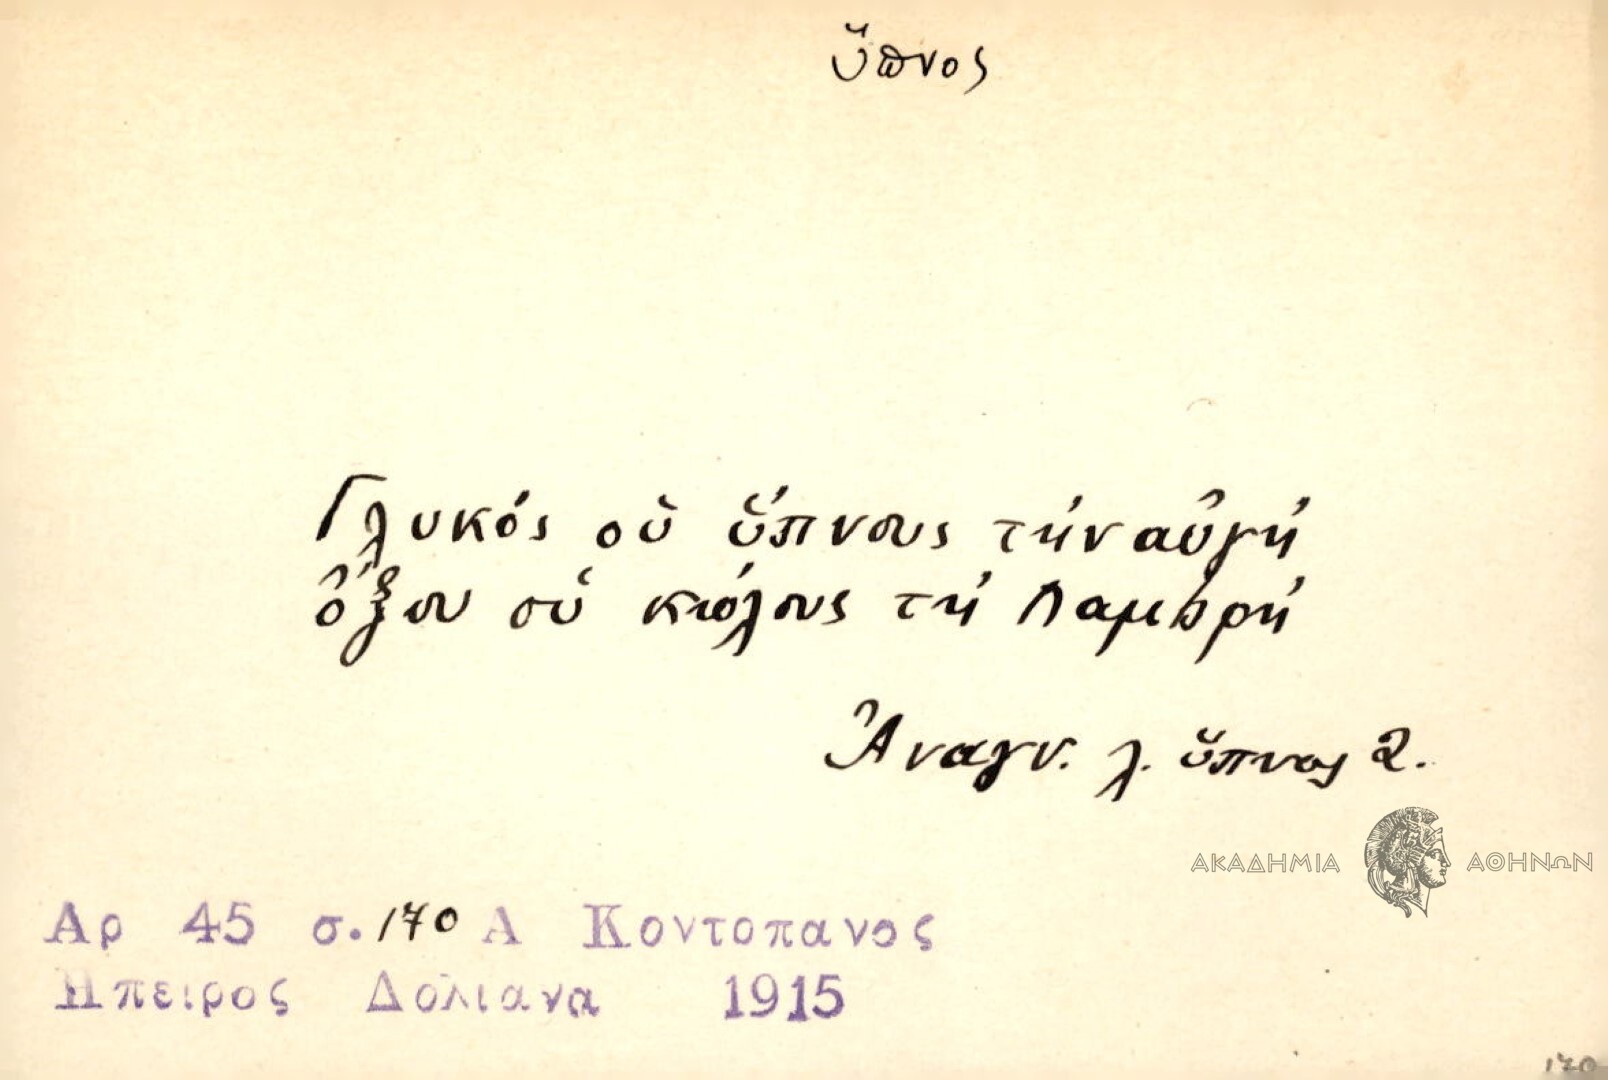 ὕπνος
Γλυκός οὑ ὕπνους τήν αὐγή
ὄξου οὑ κιόλους τή Λαμbρή
Ἀναγν. λ. ὕπνος 2.
ΑΚΑΔΗΜΙΑ ΑΘΗΝΩΝ
Αρ 45 σ. 170 Α Κοντοπανος
Ηπειρος Δολιανα 1915
170